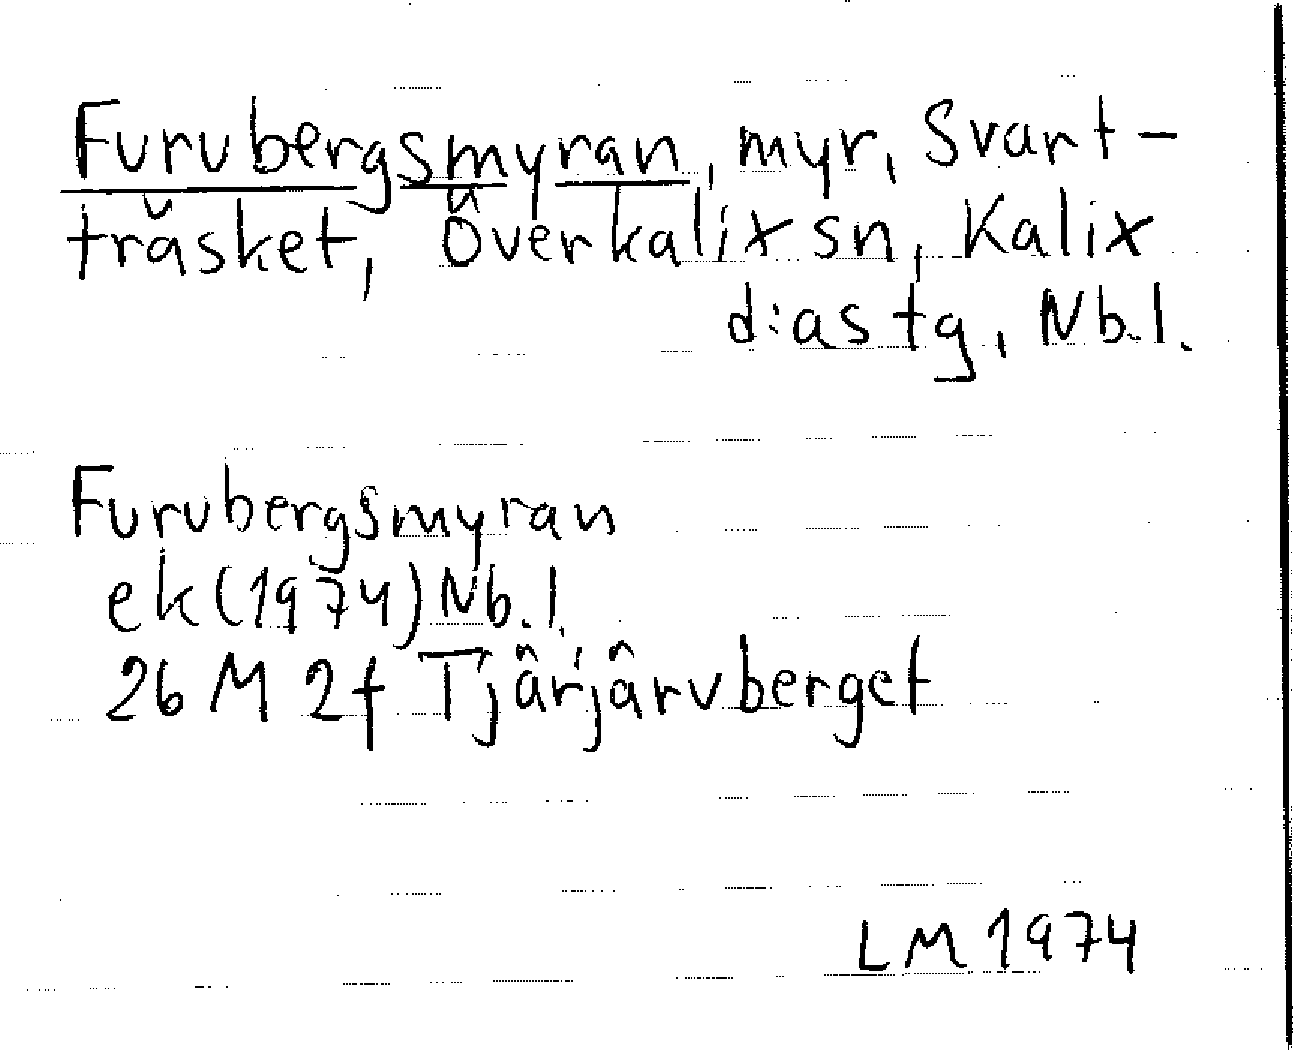 Furubergsmyran, myr, Svart-
träsket, Överkalix sn, Kalix
d:astg, Nb.l.
Furubergsmyran
ek(1974)Nb.l.
26 M 2f Tjärjärvberget
LM 1974